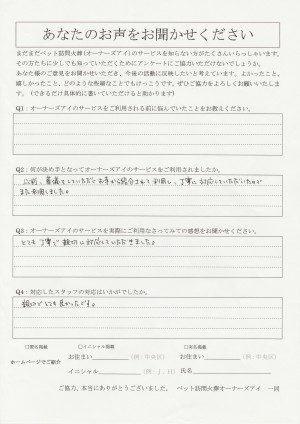 あなたのお声をお聞かせください
まだまだペット訪問火葬(オーナーズアイ)のサービスを知らない方がたくさんいらっしゃいます。
その方たちに少しでも知っていただくためにアンケートにご協力いただけないでしょうか。
あなた様のご意見をお聞かせいただき、今後の活動に反映したいと考えています。よかったこと、
嬉しかったこと、どのような些細なことでもけっこうです。ぜひご協力をよろしくお願いいたしま
す。（できるだけ具体的に書いていただけると助かります）
Q1：オーナーズアイのサービスをご利用される前に悩んでいたことをお教えください。
Q2：何が決め手となってオーナーズアイのサービスをご利用されましたか。
以前、葬儀をしていただく お寺から紹介されて利用し、丁寧に対応していただいたので
また利用しました。
Q3：オーナーズアイのサービスを実際にご利用なさってみての感想をお聞かせください。
とても丁寧で親切に対応していただきました。
Q4：対応したスタッフの対応はいかがでしたか。
親切でとても良かったです。
ホームページでご紹介
□匿名掲載 □イニシャル掲載 □実名掲載
お住まい （例：中央区） お住まい （例：中央区）
イニシャル （例：J．H） 氏名
ご協力、本当にありがとうございました。 ペット訪問火葬オーナーズアイ 一同